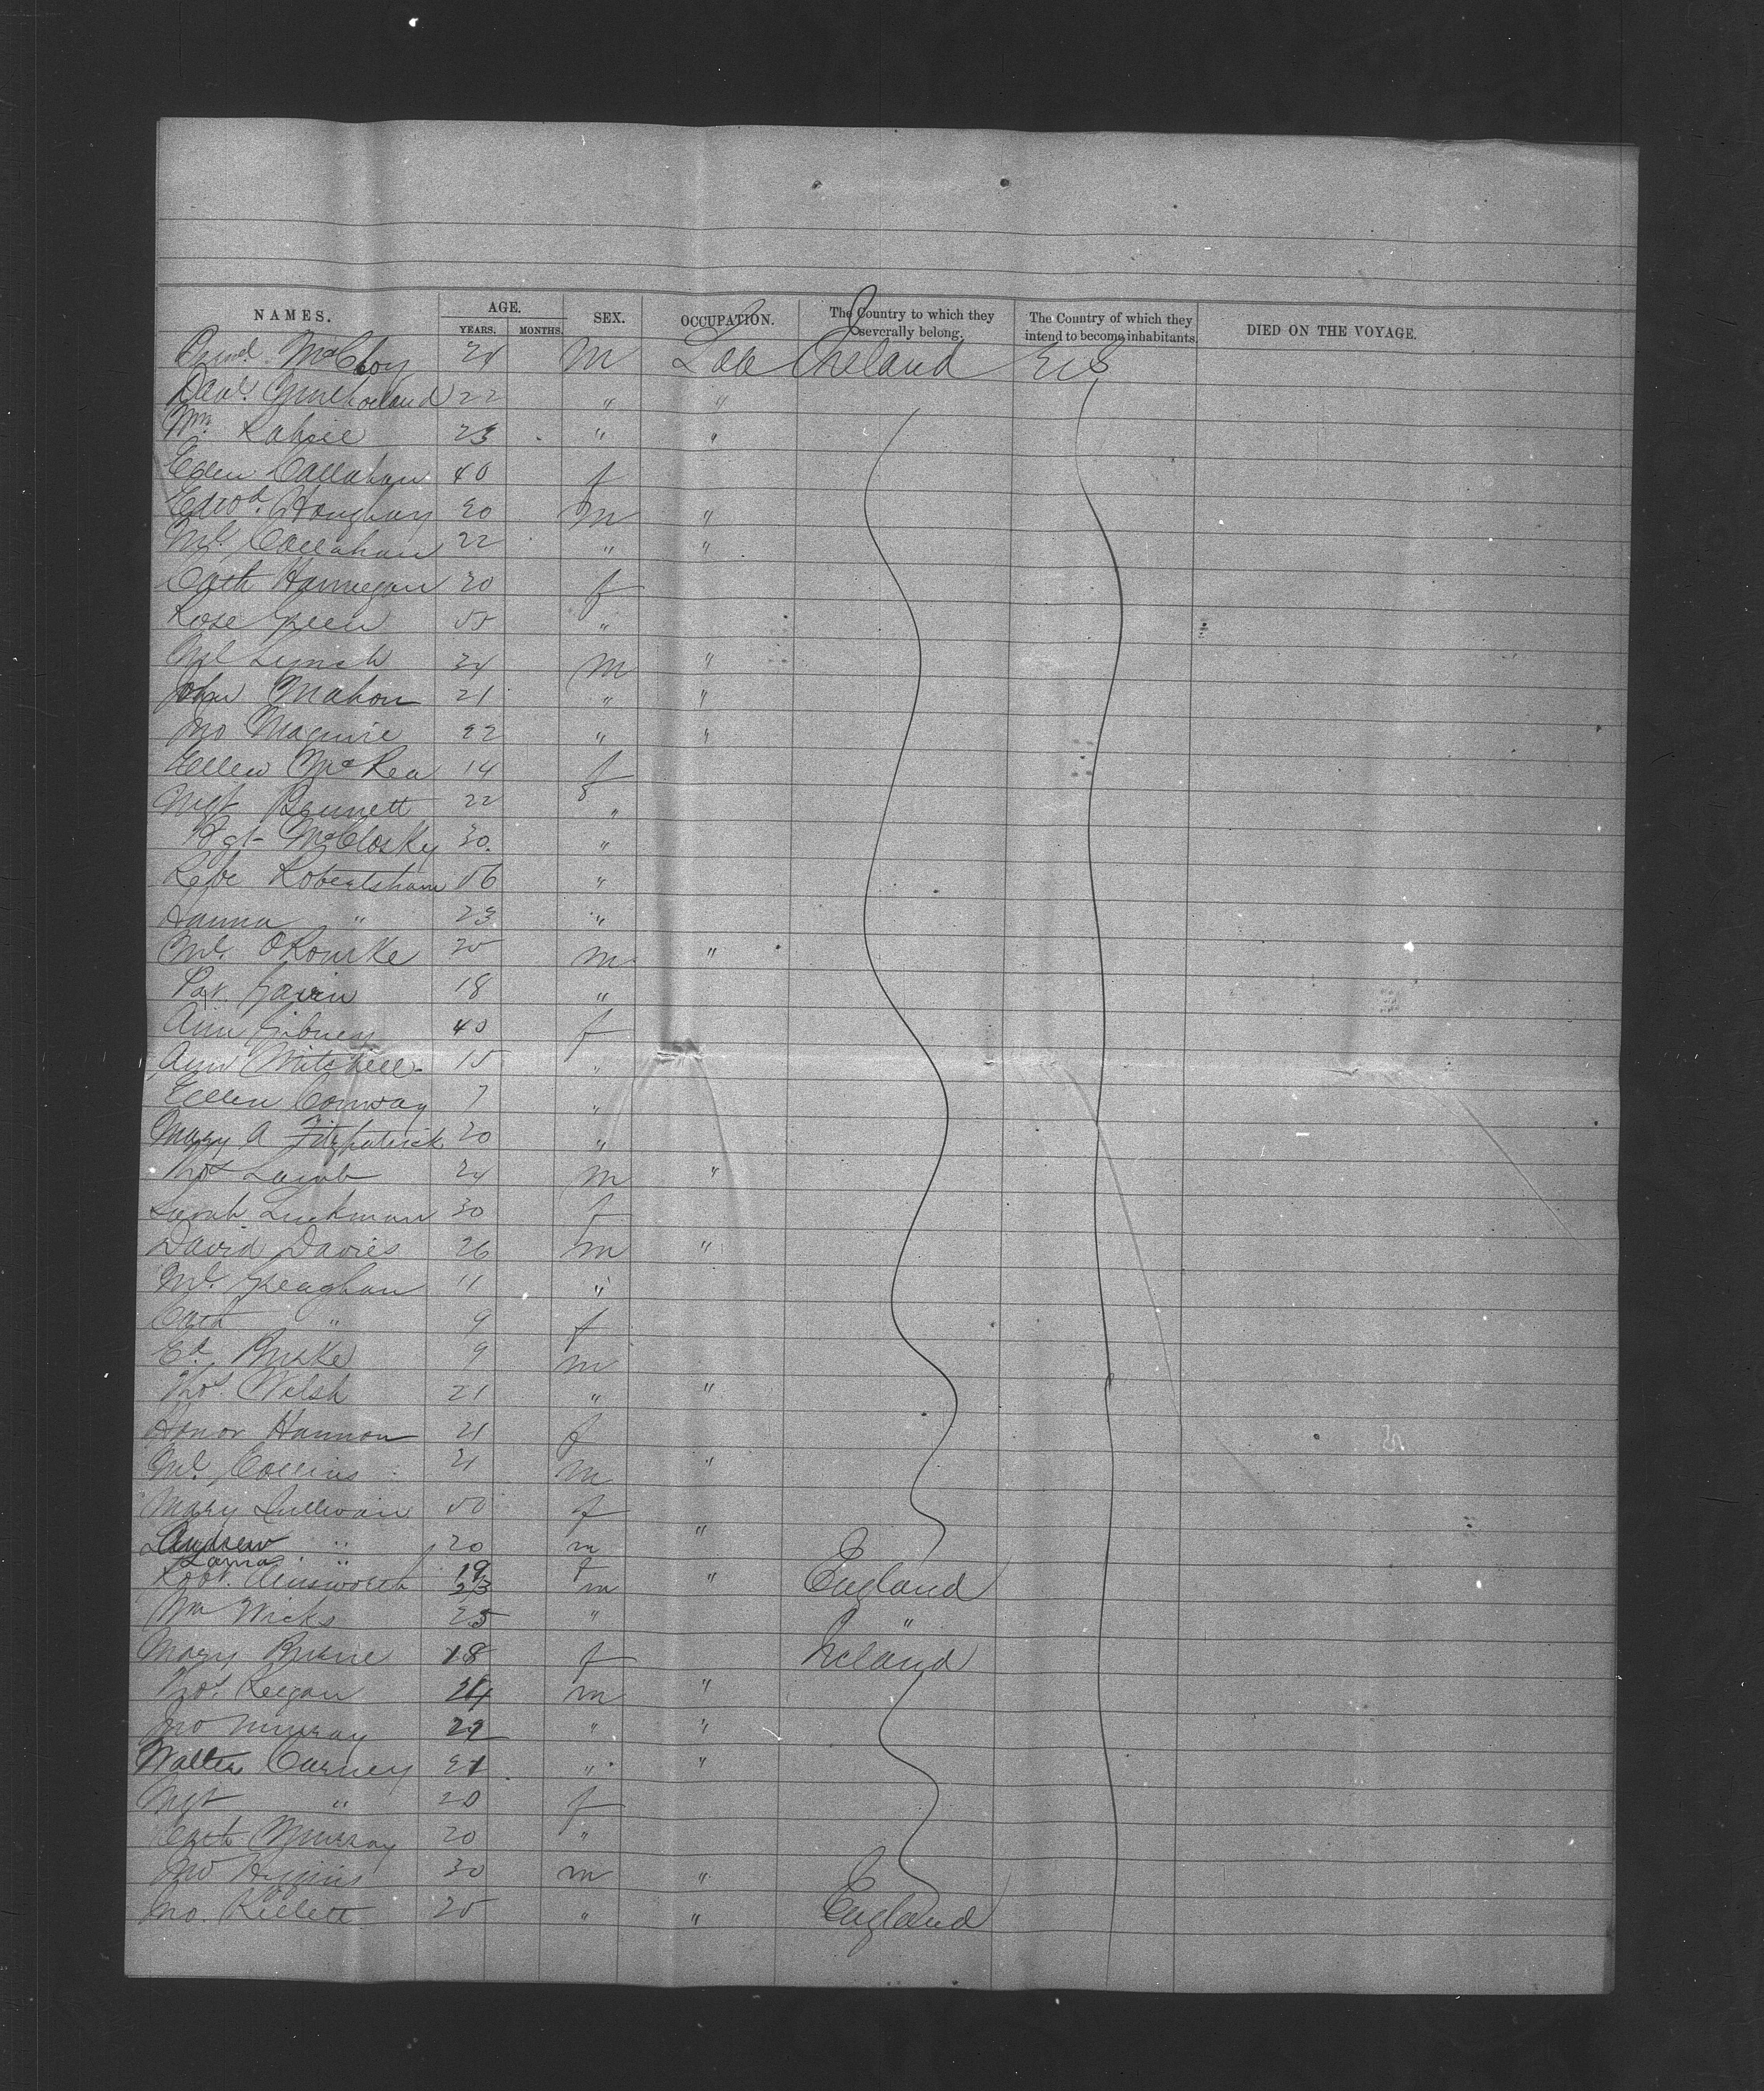 NAMES. AGE. SEX. OCCUPATION. The Country to which they severally belong. The Country of which they intend to become inhabitants. DIED ON THE VOYAGE.
YEARS. MONTHS.
McCloy 24 m Lab Ireland U S
Danl. Mulholland 22 " "
Wm. 23 " "
Ellen Callahan 40 f
Edwd. Houghay 20 m "
Ml. Callahan 22 " "
Cath Hannegan 20 f
Rose Green 55 "
Ml Lynch 24 m "
John Mahon 21 " "
Jno Maguire 22 " "
Ellen McRea 14 f
Mgt Bennett 22 "
Bgt McClosky 30. "
Robertshaw 56 "
Hanna " 23 "
Ml. ORourke 25 m "
Pat. Gavin 18 "
Ann Gibney 40 f
Ann Mitchell 15 "
Ellen Conway 7 "
Mary A Fitzpatrick 20 "
Thos Lamb 24 m "
Sarah Luckman 30 f
David Davies 26 m "
Ml. Greaghan 11 "
Cath " 9 f
Ed. Burke 9 m
Thos Welsh 21 " "
Honor Hannon 21 f
Ml. Collins 21 m "
Mary Sullivan 50 f
Andrew " 20 m "
" 19 f
Robt. Ainsworth 23 m " England
Wm Wicks 25 " "
Mary Burne 18 f Ireland
Thos. Regan 24 m "
Jno Murray 22 " "
Walter Carney 21 " "
Mgt " 20 f
Cath Murray 20 "
Jno Higgins 30 m "
Jno. Kellett 25 " " England